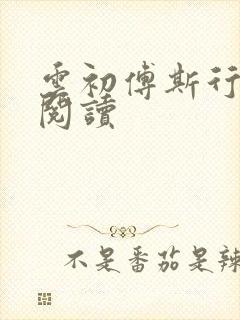 雲初傅斯行
閱讀
不是番茄是辣